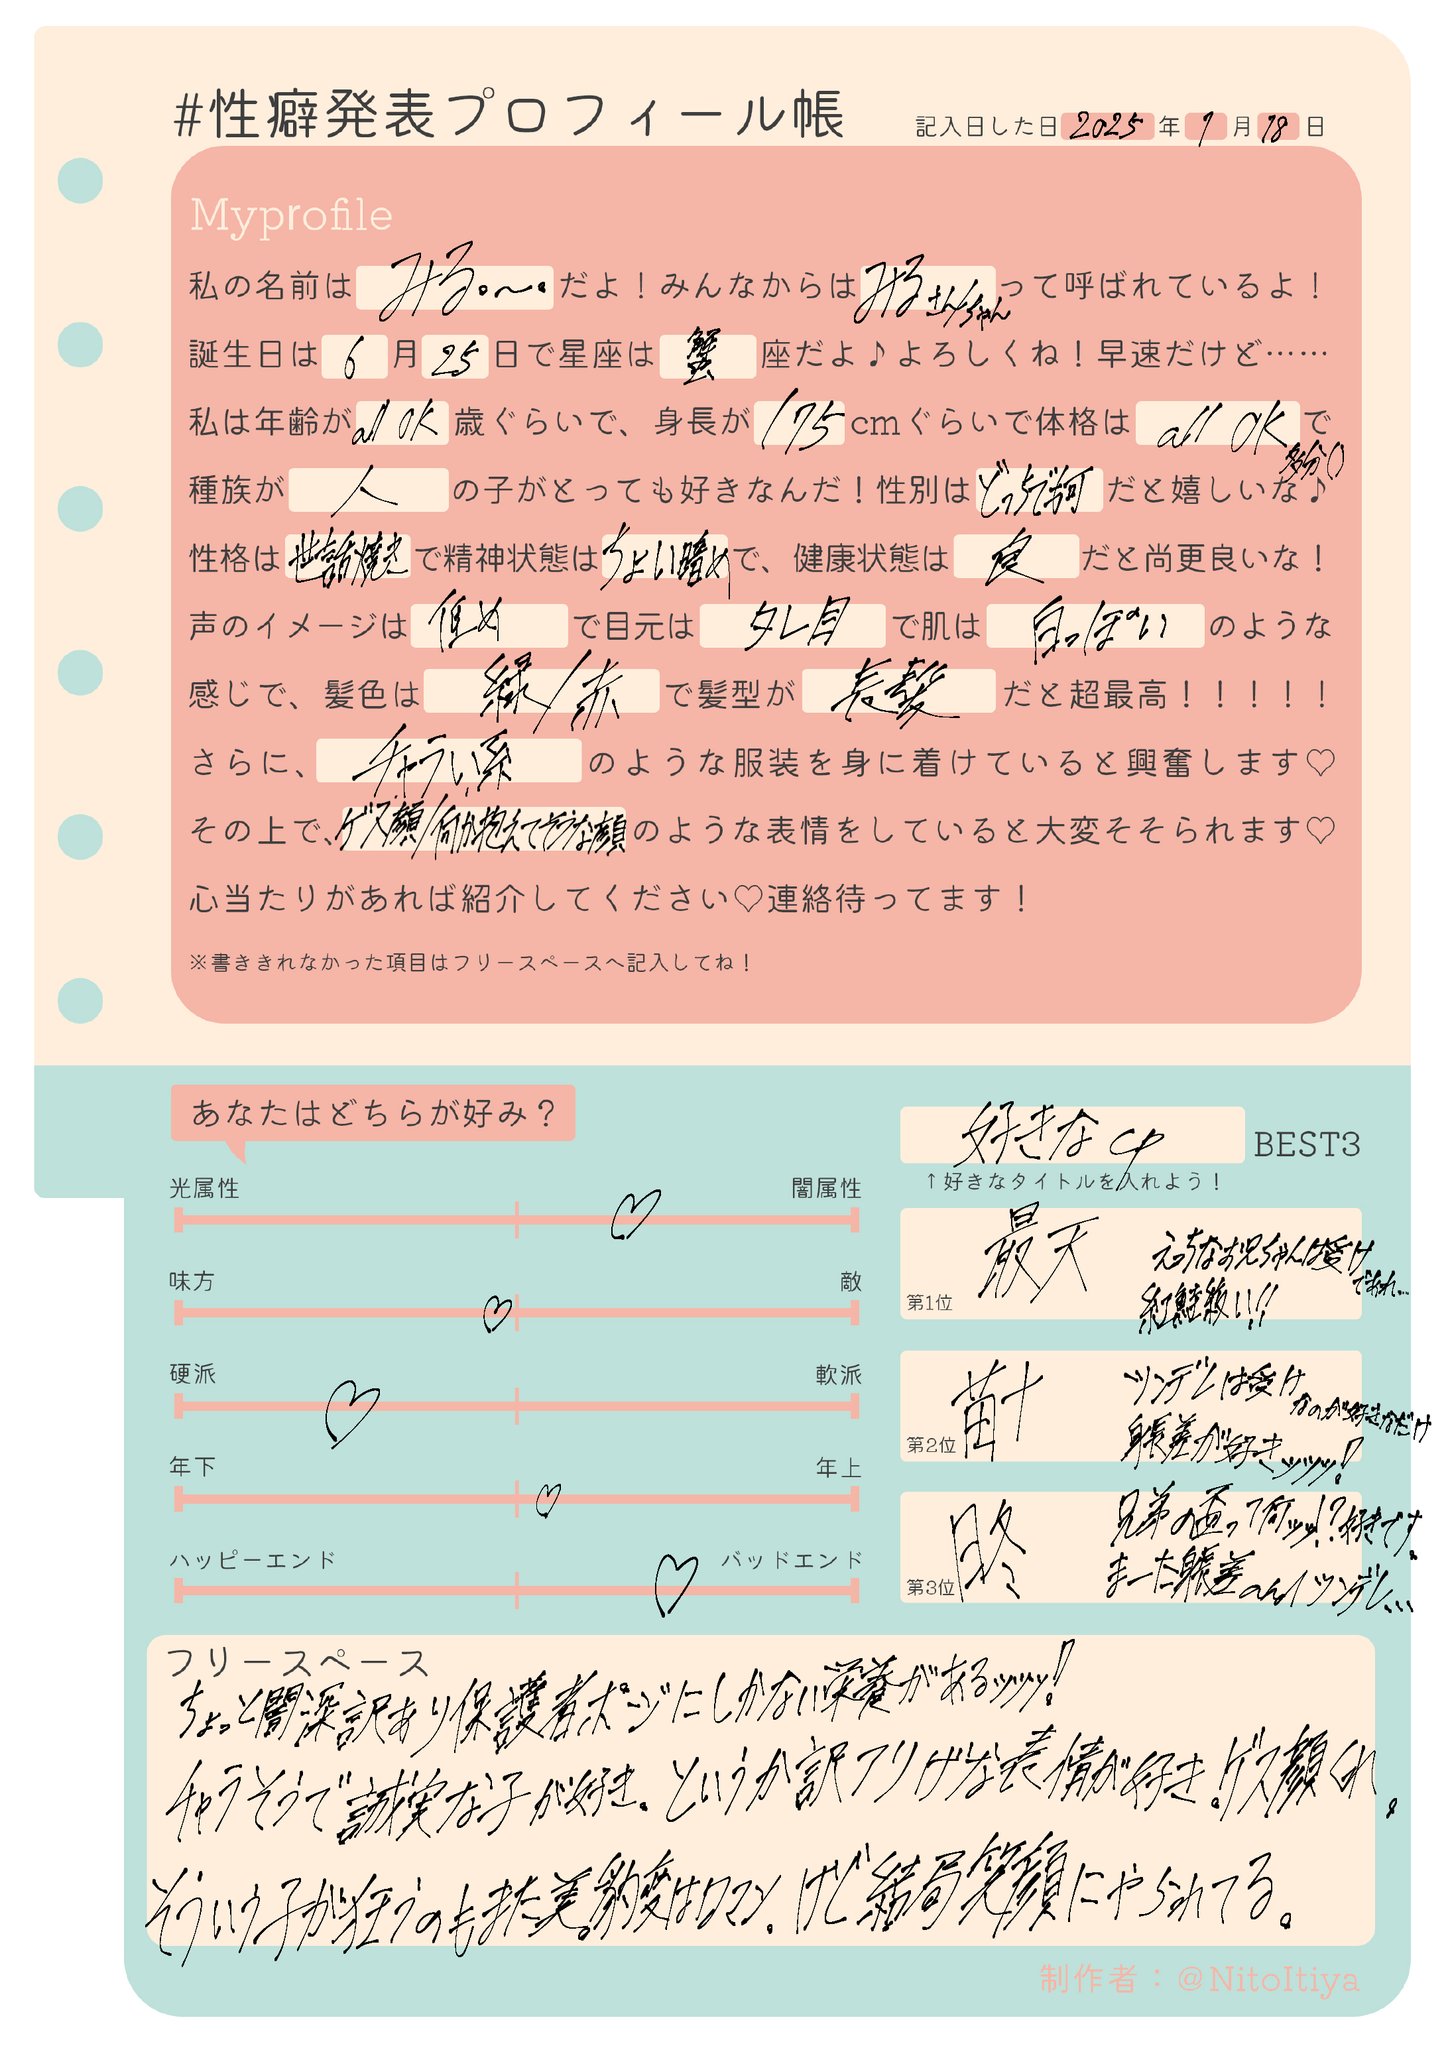 #性癖発表プロフィール帳
記入日した日 2025 年 1 月 18 日
Myprofile
私の名前は みる。〜。 だよ！みんなからは みるさん/ちゃん って呼ばれているよ！
誕生日は 6 月 25 日で星座は 蟹 座だよ♪よろしくね！早速だけど……
私は年齢が all OK 歳ぐらいで、身長が 175 cmぐらいで体格は all OK で
多分()
種族が 人 の子がとっても好きなんだ！性別は どっちでも可 だと嬉しいな♪
性格は 世話焼き で精神状態は ちょい暗め で、健康状態は 良 だと尚更良いな！
声のイメージは 低め で目元は タレ目 で肌は 白っぽい のような
感じで、髪色は 緑/赤 で髪型が 長髪 だと超最高！！！！！
さらに、 チャラい系 のような服装を身に着けていると興奮します♡
その上で、 ゲス顔/何か抱えてそうな顔 のような表情をしていると大変そそられます♡
心当たりがあれば紹介してください♡連絡待ってます！
※書ききれなかった項目はフリースペースへ記入してね！
あなたはどちらが好み？
光属性 闇属性
味方 敵
硬派 軟派
年下 年上
ハッピーエンド バッドエンド
好きなcp BEST3
↑好きなタイトルを入れよう！
第1位 最天 えっちなお兄ちゃんは受けであれ…
紅鮭扱い!!
第2位 ツンデレは受けなのが好きなだけ
身長差が好きッッッ!
第3位 兄弟の盃って何ッッ!?好きです。
まーた身長差 ツンデレ…
フリースペース
ちょっと闇深訳あり保護者ポジにしかない栄養があるッッッ!
チャラそうで誠実な子が好き。というか訳アリげな表情が好き。ゲス顔くれ。
そういう子が狂うのもまた美。豹変はロマン。けど結局笑顔にやられてる。
制作者：@NitoItiya